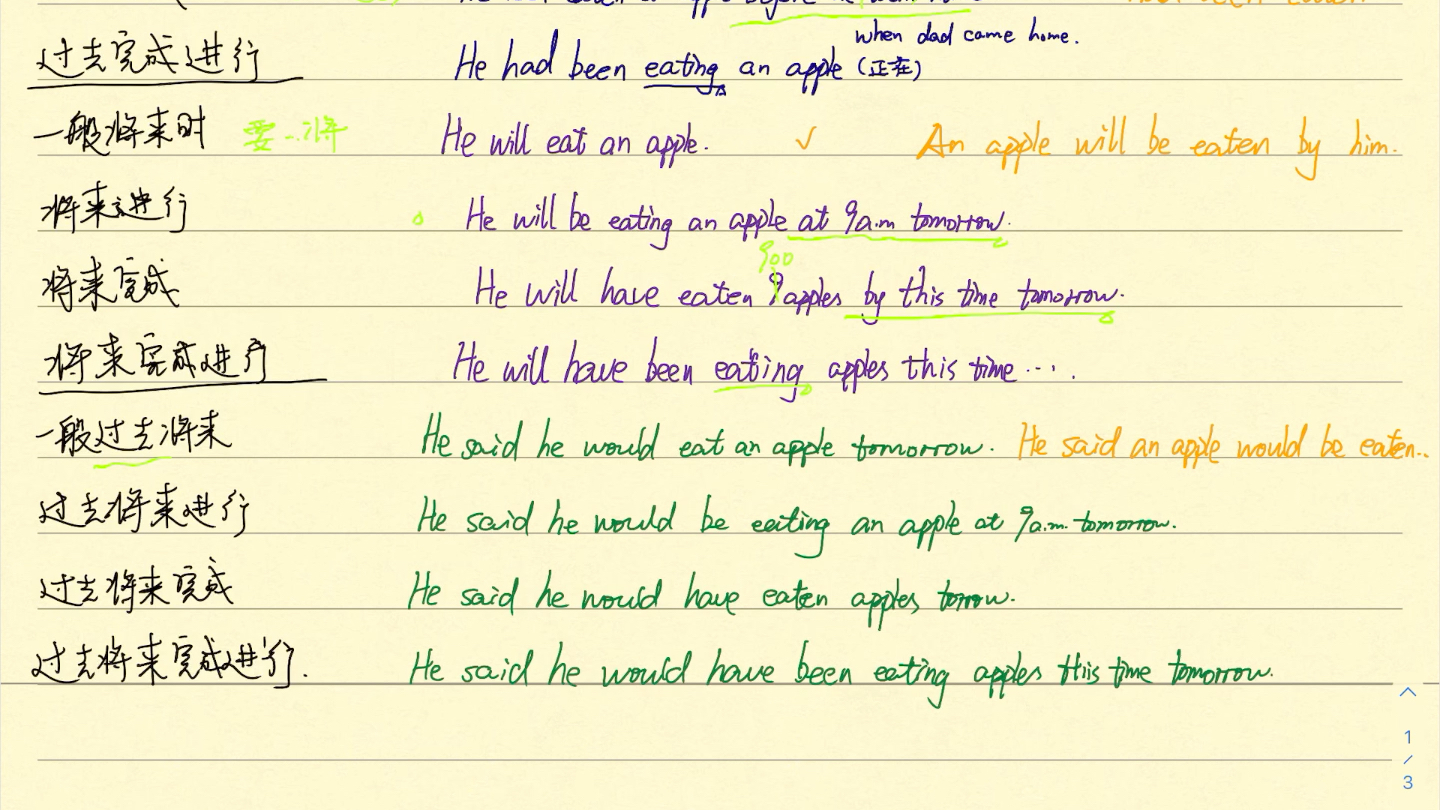 when dad come home.
过去完成进行 He had been eating an apple (正在)
一般将来时 要…将 He will eat an apple. ✓ An apple will be eaten by him.
将来进行 He will be eating an apple at 9a.m tomorrow.
900
将来完成 He will have eaten 9 apples by this time tomorrow.
将来完成进行 He will have been eating apples this time ....
一般过去将来 He said he would eat an apple tomorrow. He said an apple would be eaten..
过去将来进行 He said he would be eating an apple at 9a.m. tomorrow.
过去将来完成 He said he would have eaten apples torrow.
过去将来完成进行. He said he would have been eating apples this time tomorrow.
1
/
3